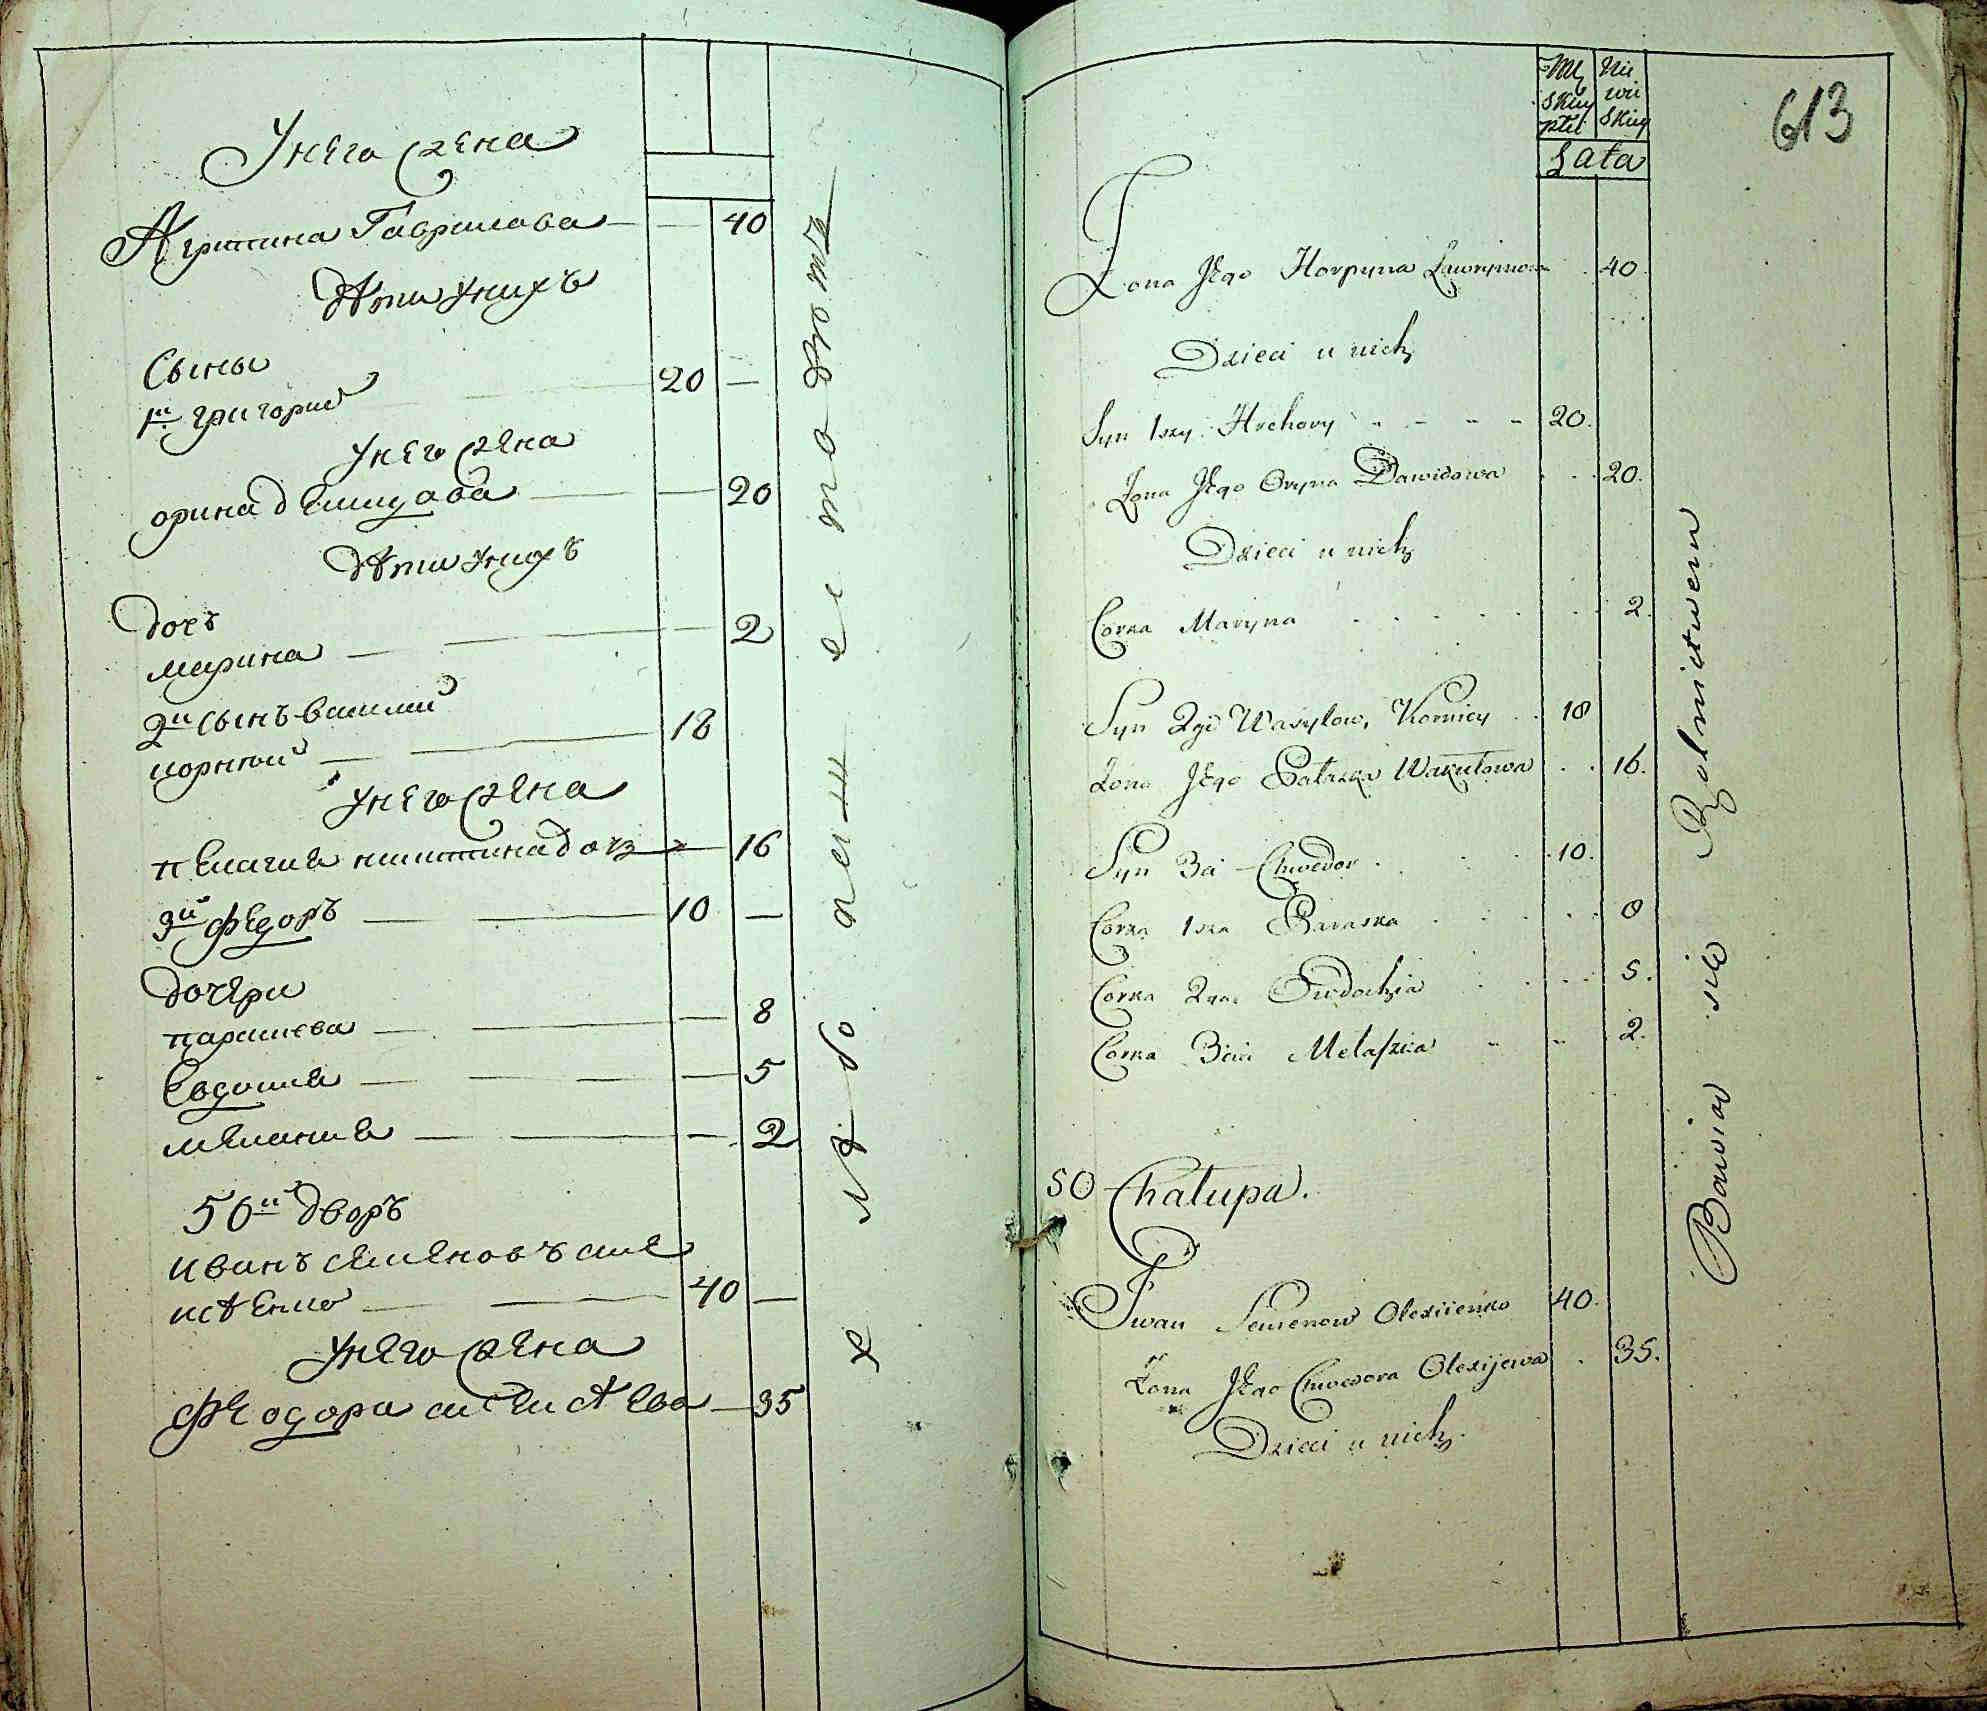 У него жена
Агрипина Гаврилова — — 40
Дѣти у нихъ
Сыны
1й григорий 20 —
У него жена
орина демидова — — 20
Дѣти у нихъ
дочь
марина — — 2
2й сынъ василий
корний — — 18
У него жена
пелагия никитина дочь — 16
3й федоръ — — 10 —
дочери
парасковя — — — 8
Евдокия — — — — 5
мелания — — — 2
50й дворъ
иванъ семеновъ але
ксѣенко — — 40 —
У него жена
феодора алексѣева — 35
хлѣбопашествомъ
613
Mę skiey płci
Nie wie skiey
Lata
Zona Jego Horpyna Lawrynowa . 40
Dzieci u nich
Syn 1szy Hrehory - - - - 20.
Zona Jego Oryna Dawidowa . . 20.
Dzieci u nich
Corka Maryna . . . . . 2.
Syn 2gi Wasylow, Korniey . . 18
Zona Jego Palazka Wakułowa . . 16.
Syn 3ci Chwedor . . . 10.
Corka 1sza Paraska . . . . 8
Corka 2ga Owdochia . . . . 5.
Corka 3cia Melaszka " " . 2.
50 Chałupa.
Iwan Semenow Olexiienko 40.
Zona Jego Chwedora Olexijewa . 35.
Dzieci u nich.
Bawia sie Rolnictwem